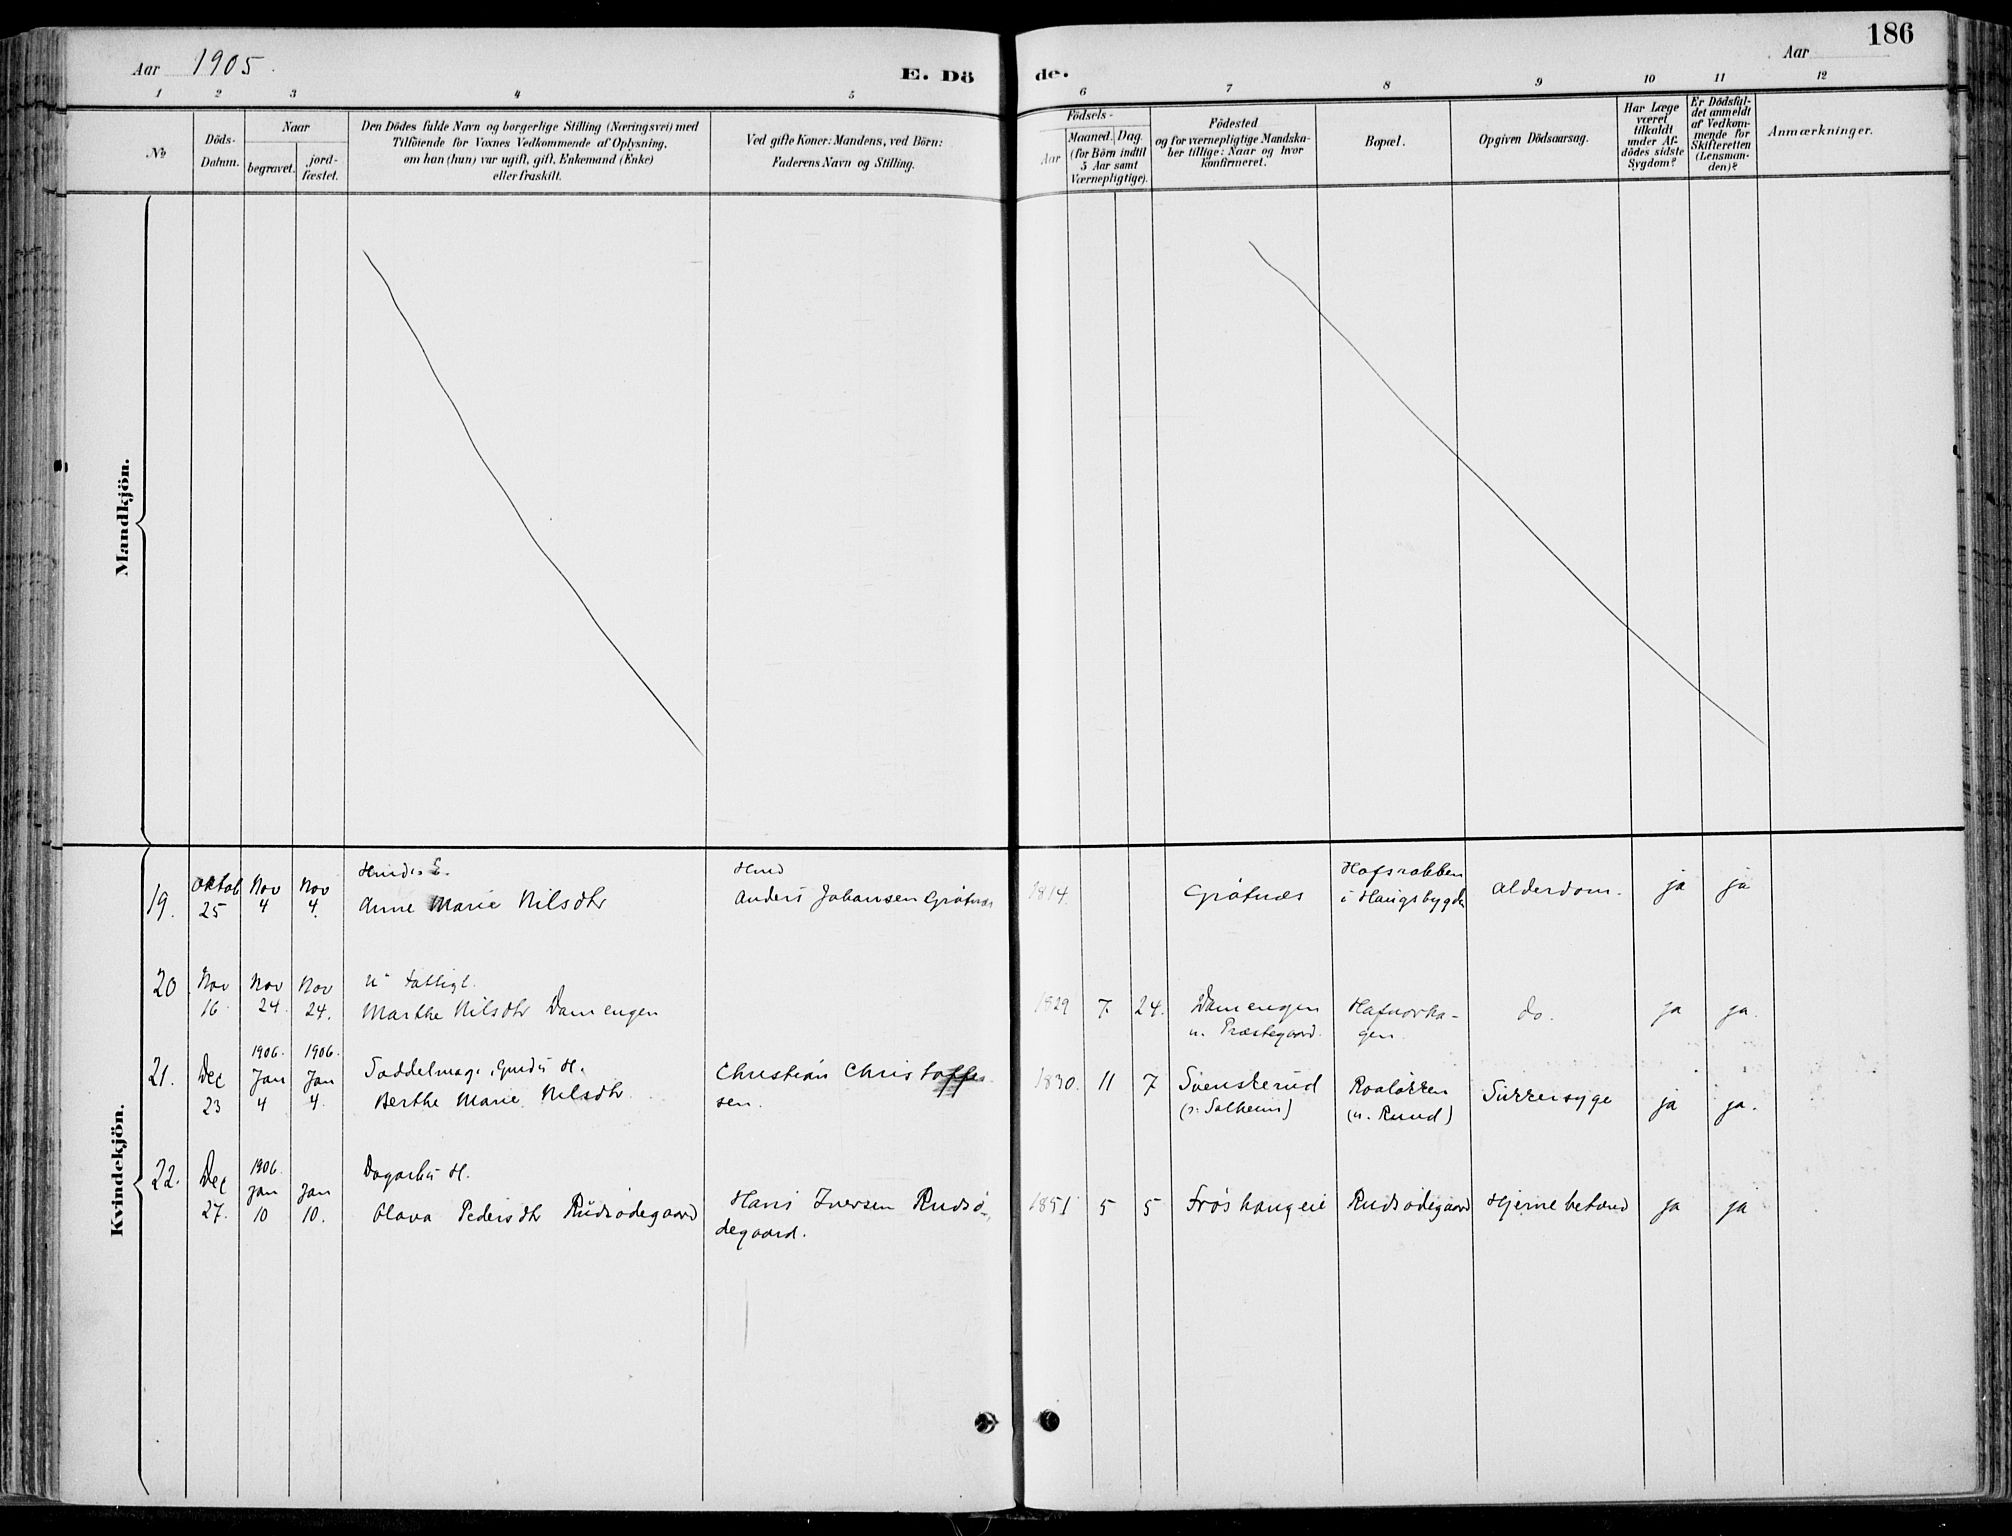 186
Aar 1905.
E. Dö
de.
Aar
1 2 3 4 5 6 7 8 9 10 11 12
No
Döds-
Datum.
Naar
begravet.
jord-
fæstet.
Den Dödes fulde Navn og borgerlige Stilling (Næringsvei) med
Tilföiende for Voxnes Vedkommende af Oplysning,
om han (hun) var ugift, gift, Enkemand (Enke)
eller fraskilt.
Ved gifte Koner: Mandens, ved Börn:
Faderens Navn og Stilling.
Födsels-
Aar
Maaned. Dag.
(for Börn indtil
5 Aar samt
Værnepligtige).
Födested
og for værnepligtige Mandska-
ber tillige: Naar og hvor
konfirmeret.
Bopæl.
Opgiven Dödsaarsag.
Har Læge
været
tilkaldt
under Af-
dödes sidste
Sygdom?
Er Dödsfal-
det anmeldt
af Vedkom-
mende for
Skifteretten
(Lensman-
den)?
Anmærkninger.
Mandkjön.
Kvindekjön.
19.
Oktob
25
Nov
4
Nov
4.
Hmds E.
Anne Marie Nilsdtr
Hmd
Anders Johansen Grøtnæs
1814.
Grøtnæs
Hafsrabben
i Haugsbygda
Alderdom.
ja
ja
20
Nov
16.
Nov
24.
Nov
24.
Marthe Nilsdtr Damengen
1829
7
24.
Damengen
u. Præstegaard.
do.
ja
ja.
21.
Dec
23
1906.
Jan
4
1906.
Jan
4.
Berthe Marie Nilsdtr
Christian Christoffer
sen.
1830.
11
7
Svensterud
(i Solheim)
(u. Ruud)
Sukkersyge
ja
ja.
22.
Dec
27.
1906.
Jan
10
Jan
10.
Olava Pedersdtr Rudsødegaard
Hans Iversen Rudsø-
degaard.
1851
5
5
Frøshaugeie
Rudsødegaard
Hjernebetænd
ja
ja